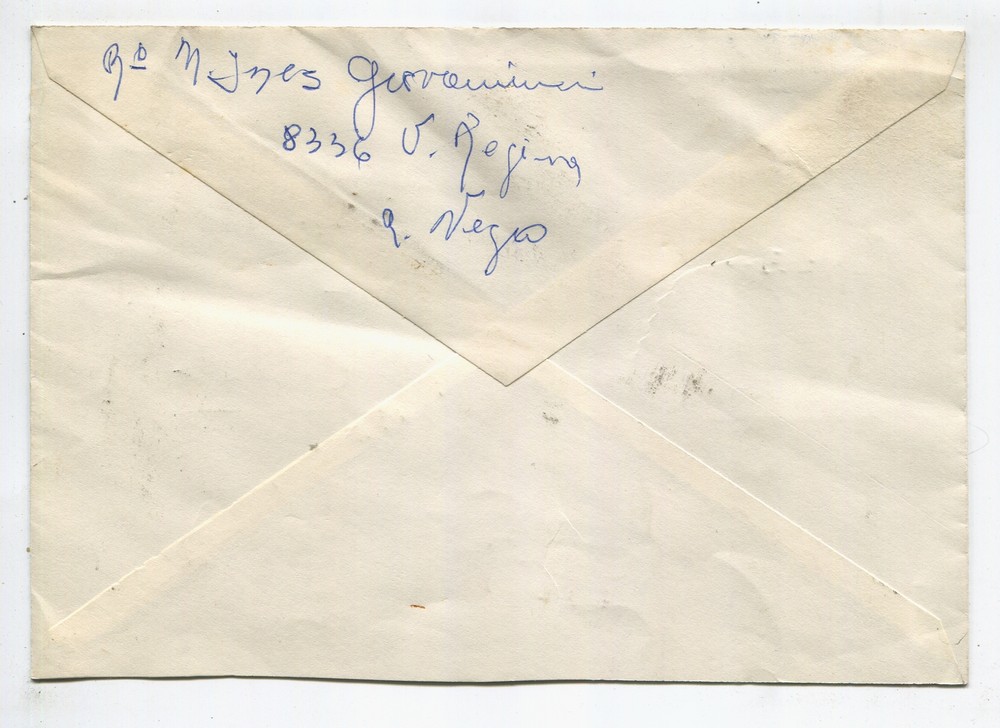 R° M. Ines Giovanini
8336 V. Regina
R. Negro